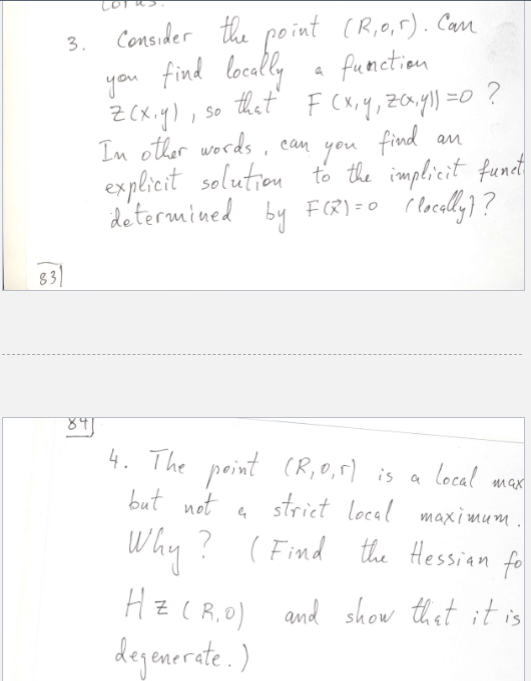 3. Consider the point (R,0,r). Can
you find locally a function
z(x,y), so that F(x,y,z(x,y))=0 ?
In other words, can you find an
explicit solution to the implicit funct
determined by F(x⃗)=0 (locally)?
83
84
4. The point (R,0,r) is a local max
but not a strict local maximum.
Why? (Find the Hessian fo
Hz(R,0) and show that it is
degenerate.)